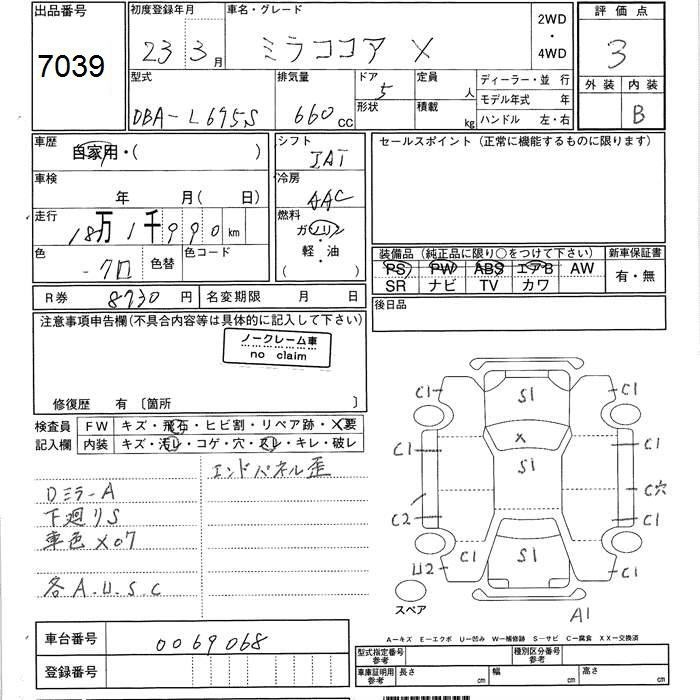 出品番号
7039
初度登録年月
23 3月
車名・グレード
ミラココア X
2WD
・
4WD
評価点
3
外装 内装
B
型式
DBA-L675S
排気量
660 cc
ドア 5
形状
定員 人
積載 kg
ディーラー・並 行
モデル年式 年
ハンドル 左・右
車歴
自家用・( )
シフト
IAT
セールスポイント (正常に機能するものに限ります)
車検
年 月( 日)
冷房
AAC
走行
18万1千990km
燃料
ガソリン
・
軽・油
( )
色
-クロ
色替
色コード
装備品 (純正品に限り○をつけて下さい)
新車保証書
PS PW ABS エアB AW
SR ナビ TV カワ
有・無
R券 8730円
名変期限 月 日
後日品
注意事項申告欄(不具合内容等は具体的に記入して下さい)
ノークレーム車
no claim
修復歴 有 〔箇所 〕
検査員
記入欄
FW キズ・飛石・ヒビ割・リペア跡・X要
内装 キズ・汚レ・コゲ・穴・スレ・キレ・破レ
エンドパネル歪
Dミラ-A
下廻りS
車色X07
各A.U.S.C
C1 S1 C1
X
C1 S1 C1
C穴
C2 C1
C1 S1
U2 C1
スペア
A1
A-キズ E-エクボ U-凹み W-補修跡 S-サビ C-腐食 XX-交換済
車台番号
0069068
登録番号
型式指定番号
参考
種別区分番号
参考
車庫証明用
参考
長さ cm
幅 cm
高さ cm